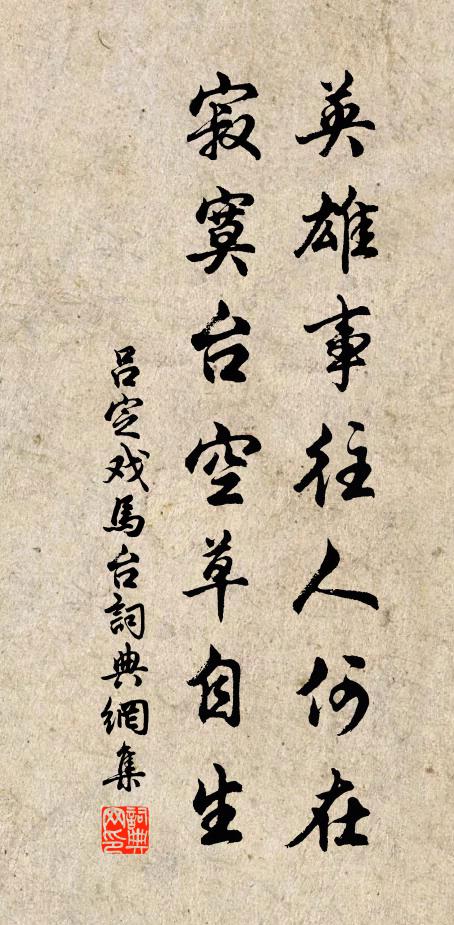 英雄事往人何在
寂寞台空草自生
吕定戏馬台詞典網集
詞典網印